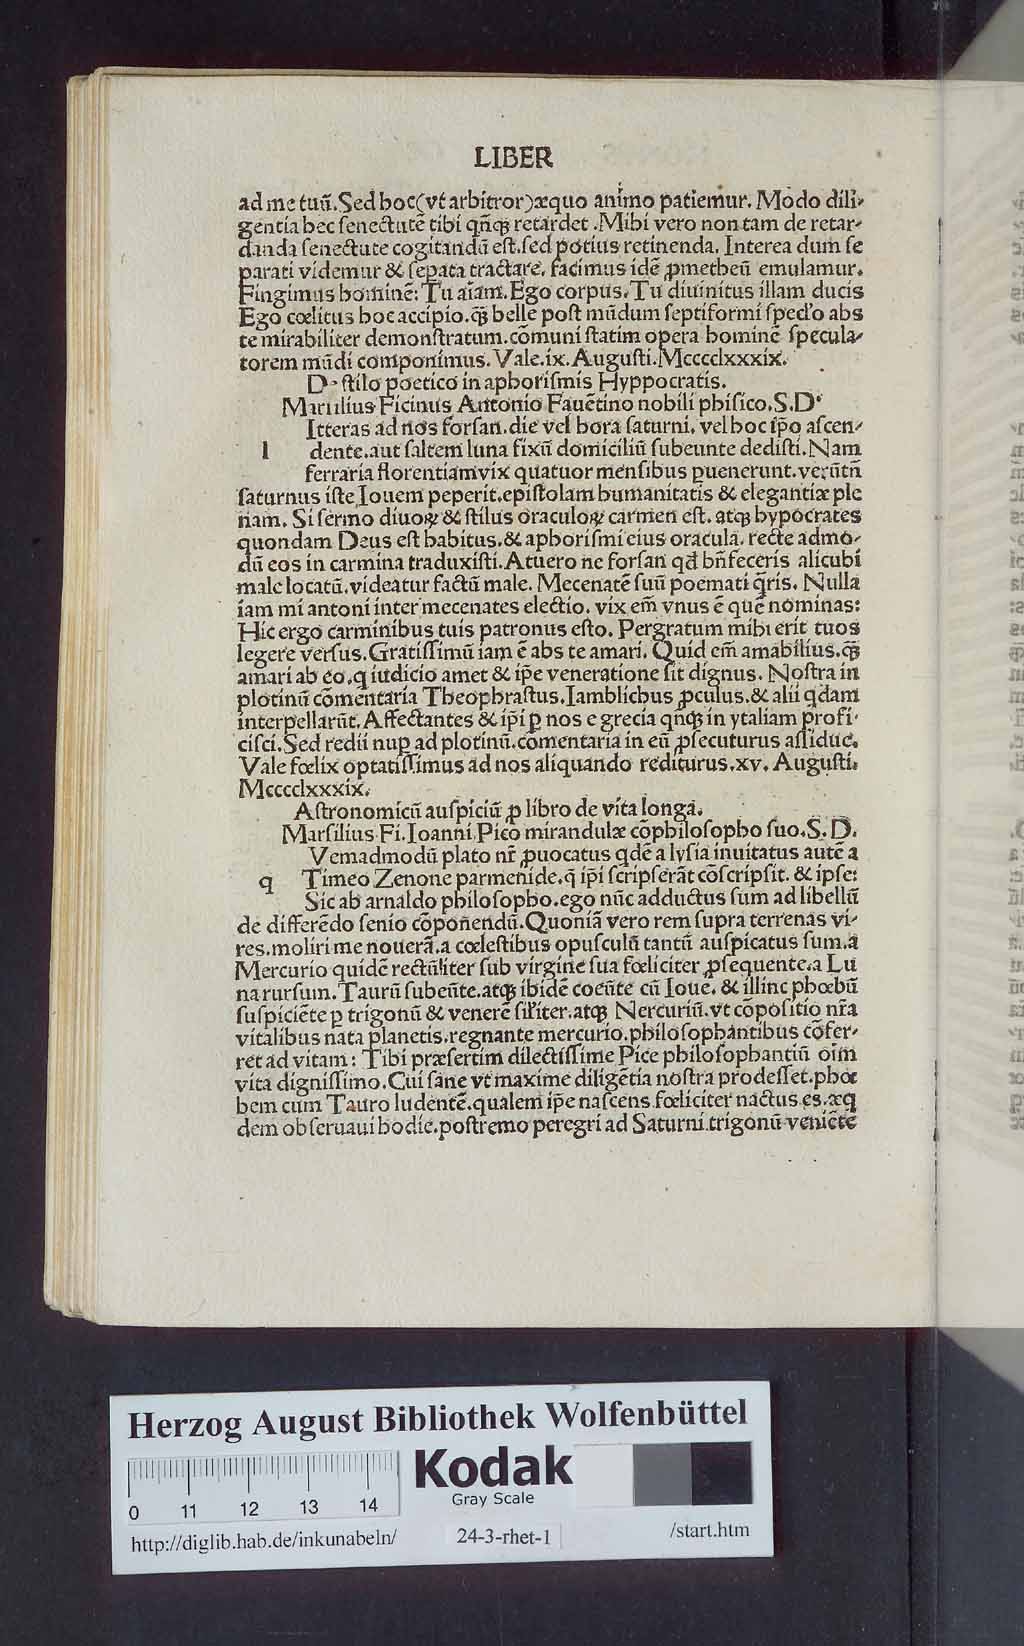 LIBER
ad me tuū. Sed hoc (vt arbitror) æquo animo patiemur. Modo dili-
gentia hec senectutē tibi qñꝗ retardet. Mihi vero non tam de retar-
danda senectute cogitandū est. sed potius retinenda. Interea dum se
parati videmur & sepata tractare. facimus idē ꝓmetheū emulamur.
Fingimus hominē: Tu aīam. Ego corpus. Tu diuinitus illam ducis
Ego cœlitus hoc accipio. ꝗ̃ belle post mūdum septiformi sped'o abs
te mirabiliter demonstratum. cōmuni statim opera hominē specula-
torem mūdi componimus. Vale. ix. Augusti. Mcccclxxxix.
D. stilo poetico in aphorismis Hyppocratis.
Marsilius Ficinus Antonio Fauētino nobili phisico. S. D.
Itteras ad nos forsan. die vel hora saturni. vel hoc ip̄o ascen-
l dente. aut saltem luna fixū domiciliū subeunte dedisti. Nam
ferraria florentiam vix quatuor mensibus ꝑuenerunt. verūtñ
saturnus iste Iouem peperit. epistolam humanitatis & elegantiæ ple
nam. Si sermo diuoꝝ & stilus oraculoꝝ carmen est. atꝗ hypocrates
quondam Deus est habitus. & aphorismi eius oracula. recte admo-
dū eos in carmina traduxisti. At uero ne forsan qd̄ bñfeceris alicubi
male locatū. videatur factū male. Mecenatē suū poemati q̄ris. Nulla
iam mi antoni inter mecenates electio. vix em̄ vnus ē quē nominas:
Hic ergo carminibus tuis patronus esto. Pergratum mihi erit tuos
legere versus. Gratissimū iam ē abs te amari. Quid em̄ amabilius. ꝗ̃
amari ab eo. q iudicio amet & ip̄e veneratione sit dignus. Nostra in
plotinū cōmentaria Theophrastus. Iamblichus ꝓculus. & alii qdam
interpellarūt. Affectantes & ip̄i ꝑ nos e grecia qñꝗ in ytaliam profi-
cisci. Sed redii nuꝑ ad plotinū. comentaria in eū ꝓsecuturus assidue.
Vale fœlix optatissimus ad nos aliquando rediturus. xv. Augusti.
Mcccclxxxix.
Astronomicū auspiciū ꝓ libro de vita longa.
Marsilius Fi. Ioanni Pico mirandulæ cōphilosopho suo. S. D.
Vemadmodū plato nr̄ ꝓuocatus qdē a lysia inuitatus autē a
q Timeo Zenone parmenide. q̄ ip̄i scripserāt cōscripsit. & ipse:
Sic ab arnaldo philosopho. ego nūc adductus sum ad libellū
de differēdo senio cōponendū. Quoniā vero rem supra terrenas vi-
res. moliri me nouerā. a cœlestibus opusculū tantū auspicatus sum. a
Mercurio quidē rectūliter sub virgine sua fœliciter ꝓsequente. a Lu
na rursum. Taurū subeūte. atꝗ ibidē coeūte cū Ioue. & illinc phœbū
suspiciēte ꝑ trigonū & venerē sil'iter. atꝗ Nercuriū. vt cōpositio nr̄a
vitalibus nata planetis. regnante mercurio. philosophantibus cōfer-
ret ad vitam: Tibi præsertim dilectissime Pice philosophantiū oīm
vita dignissimo. Cui sane vt maxime diligētia nostra prodesset. phœ
bem cum Tauro ludentē. qualem ip̄e nascens fœliciter nactus es. æq
dem obseruaui hodie. postremo peregri ad Saturni. trigonū veniēte
Herzog August Bibliothek Wolfenbüttel
0 11 12 13 14
Kodak
Gray Scale
http://diglib.hab.de/inkunabeln/
24-3-rhet-1
/start.htm